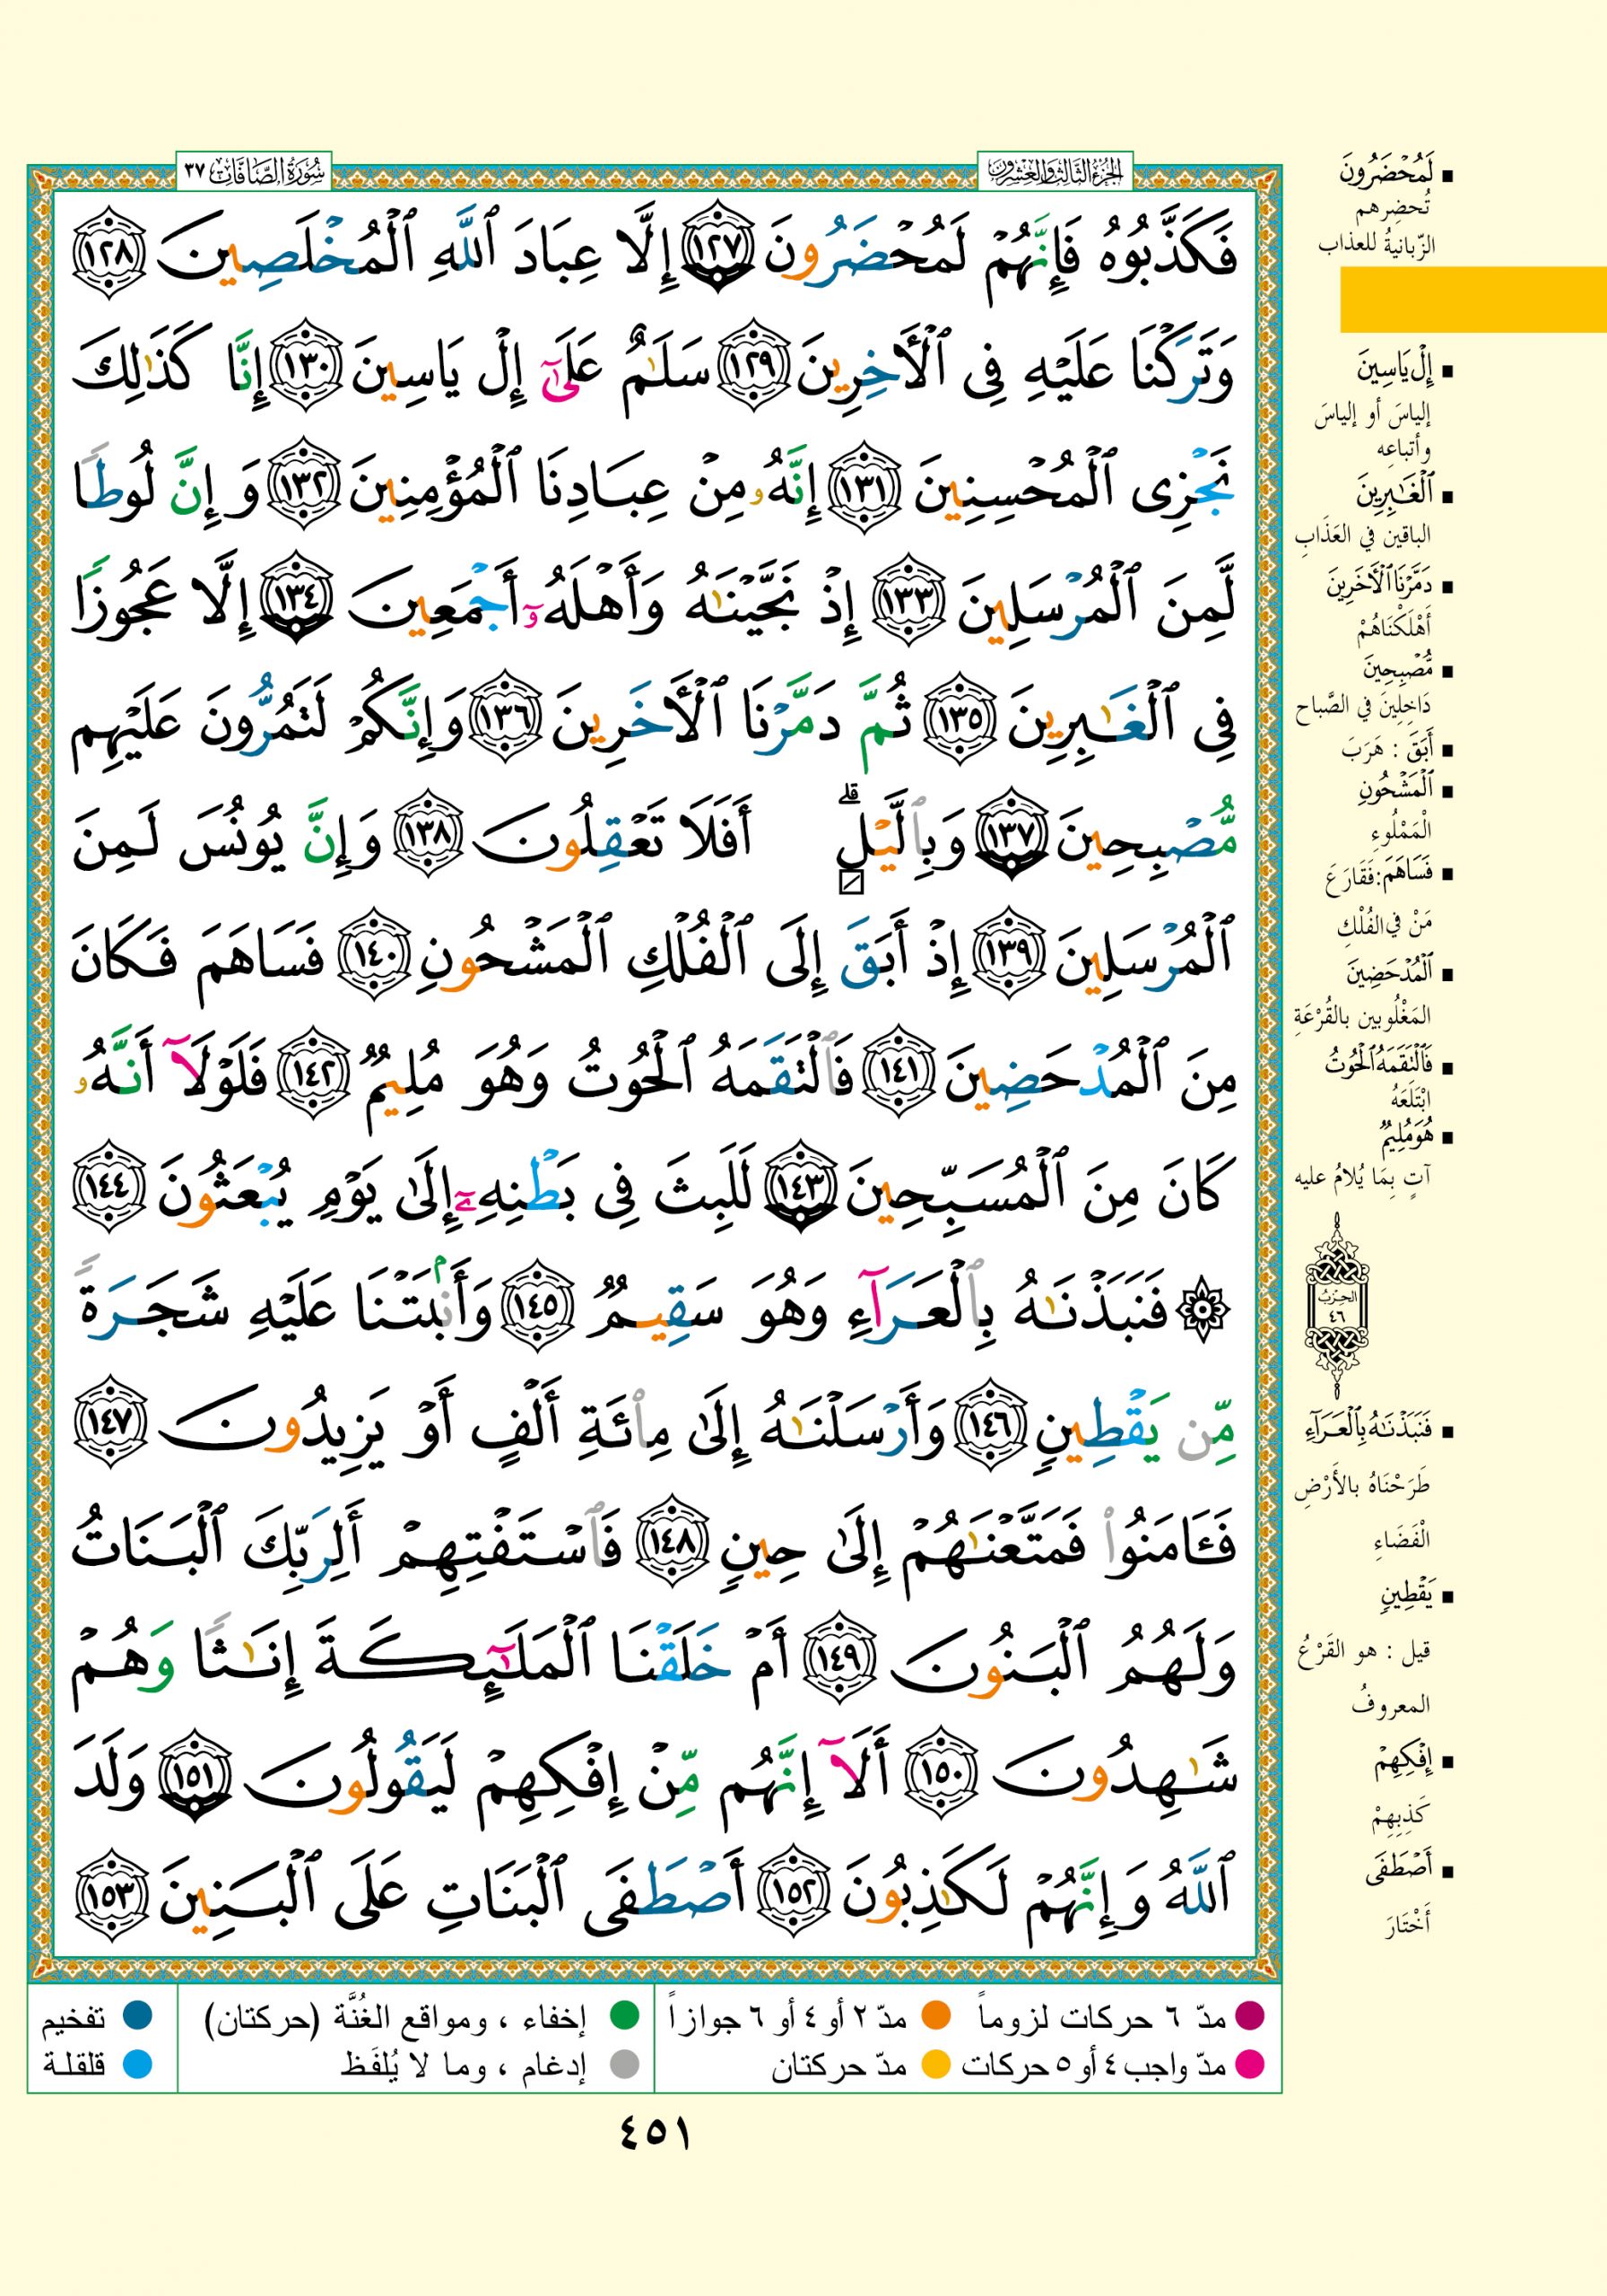 الجزء الثالث والعشرون
سورة الصافات ٣٧
فَكَذَّبُوهُ فَإِنَّهُمْ لَمُحْضَرُونَ ١٢٧ إِلَّا عِبَادَ ٱللَّهِ ٱلْمُخْلَصِينَ ١٢٨
وَتَرَكْنَا عَلَيْهِ فِى ٱلْأَخِرِينَ ١٢٩ سَلَٰمٌ عَلَىٰٓ إِلْ يَاسِينَ ١٣٠ إِنَّا كَذَٰلِكَ
نَجْزِى ٱلْمُحْسِنِينَ ١٣١ إِنَّهُۥ مِنْ عِبَادِنَا ٱلْمُؤْمِنِينَ ١٣٢ وَإِنَّ لُوطًا
لَّمِنَ ٱلْمُرْسَلِينَ ١٣٣ إِذْ نَجَّيْنَٰهُ وَأَهْلَهُۥٓ أَجْمَعِينَ ١٣٤ إِلَّا عَجُوزًا
فِى ٱلْغَٰبِرِينَ ١٣٥ ثُمَّ دَمَّرْنَا ٱلْأَخَرِينَ ١٣٦ وَإِنَّكُمْ لَتَمُرُّونَ عَلَيْهِم
مُّصْبِحِينَ ١٣٧ وَبِٱلَّيْلِ ۗ أَفَلَا تَعْقِلُونَ ١٣٨ وَإِنَّ يُونُسَ لَمِنَ
ٱلْمُرْسَلِينَ ١٣٩ إِذْ أَبَقَ إِلَى ٱلْفُلْكِ ٱلْمَشْحُونِ ١٤٠ فَسَاهَمَ فَكَانَ
مِنَ ٱلْمُدْحَضِينَ ١٤١ فَٱلْتَقَمَهُ ٱلْحُوتُ وَهُوَ مُلِيمٌ ١٤٢ فَلَوْلَآ أَنَّهُۥ
كَانَ مِنَ ٱلْمُسَبِّحِينَ ١٤٣ لَلَبِثَ فِى بَطْنِهِۦٓ إِلَىٰ يَوْمِ يُبْعَثُونَ ١٤٤
۞ فَنَبَذْنَٰهُ بِٱلْعَرَآءِ وَهُوَ سَقِيمٌ ١٤٥ وَأَنۢبَتْنَا عَلَيْهِ شَجَرَةً
مِّن يَقْطِينٍ ١٤٦ وَأَرْسَلْنَٰهُ إِلَىٰ مِا۟ئَةِ أَلْفٍ أَوْ يَزِيدُونَ ١٤٧
فَـَٔامَنُوا۟ فَمَتَّعْنَٰهُمْ إِلَىٰ حِينٍ ١٤٨ فَٱسْتَفْتِهِمْ أَلِرَبِّكَ ٱلْبَنَاتُ
وَلَهُمُ ٱلْبَنُونَ ١٤٩ أَمْ خَلَقْنَا ٱلْمَلَٰٓئِكَةَ إِنَٰثًا وَهُمْ
شَٰهِدُونَ ١٥٠ أَلَآ إِنَّهُم مِّنْ إِفْكِهِمْ لَيَقُولُونَ ١٥١ وَلَدَ
ٱللَّهُ وَإِنَّهُمْ لَكَٰذِبُونَ ١٥٢ أَصْطَفَى ٱلْبَنَاتِ عَلَى ٱلْبَنِينَ ١٥٣
لَمُحْضَرُونَ
تُحضِرهم
الزّبانيةُ للعذاب
إِلْ يَاسِينَ
إلياسَ أو إلياسَ
وأتباعِه
ٱلْغَٰبِرِينَ
الباقين في العَذَابِ
دَمَّرْنَا ٱلْأَخَرِينَ
أَهْلَكْنَاهُمْ
مُّصْبِحِينَ
دَاخِلِينَ في الصَّباح
أَبَقَ : هَرَبَ
ٱلْمَشْحُونِ
الْمَمْلُوءِ
فَسَاهَمَ : فَقَارَعَ
مَنْ في الفُلْكِ
ٱلْمُدْحَضِينَ
المَغْلُوبين بالقُرْعَةِ
فَٱلْتَقَمَهُ ٱلْحُوتُ
ابْتَلَعَهُ
هُوَ مُلِيمٌ
آتٍ بِمَا يُلامُ عليه
الحزب
٤٦
فَنَبَذْنَٰهُ بِٱلْعَرَآءِ
طَرَحْنَاهُ بالأَرْضِ
الْفَضَاءِ
يَقْطِينٍ
قيل : هو القَرْعُ
المعروفُ
إِفْكِهِمْ
كَذِبِهِمْ
أَصْطَفَى
أَخْتَارَ
مدّ ٦ حركات لزوماً مدّ ٢ أو ٤ أو ٦ جوازاً إخفاء ، ومواقع الغُنَّة (حركتان) تفخيم
مدّ واجب ٤ أو ٥ حركات مدّ حركتان إدغام ، وما لا يُلفَظ قلقلة
٤٥١